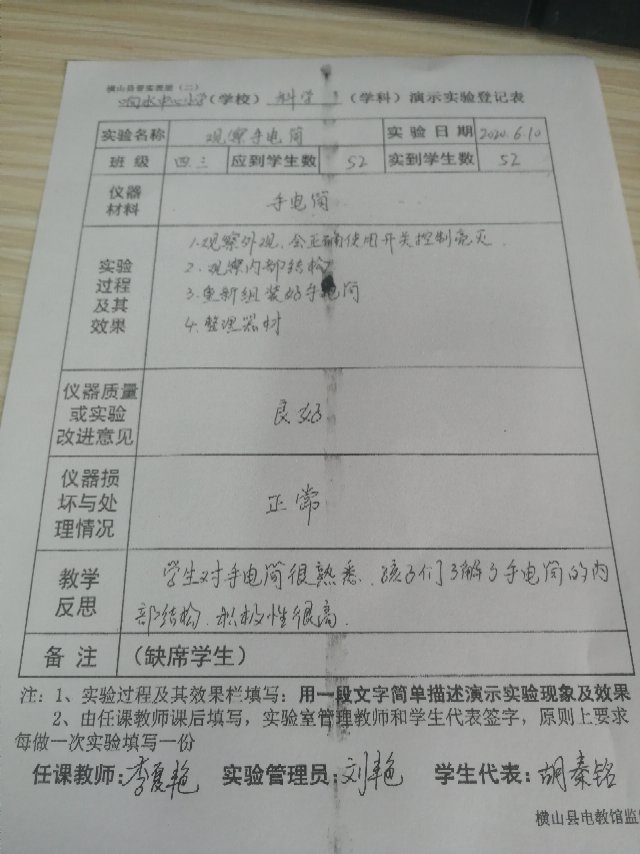 横山县普实表册（二）
响水中心小学（学校） 科学 （学科）演示实验登记表
实验名称 观察手电筒 实验日期 2020.6.10
班级 四.三 应到学生数 52 实到学生数 52
仪器
材料
手电筒
实验
过程
及其
效果
1.观察外观,会正确使用开关控制亮灭.
2.观察内部结构
3.重新组装好手电筒
4.整理器材
仪器质量
或实验
改进意见
良好
仪器损
坏与处
理情况
正常
教学
反思
学生对手电筒很熟悉.孩子们了解了手电筒的内
部结构.积极性很高.
备注 （缺席学生）
注：1、实验过程及其效果栏填写：用一段文字简单描述演示实验现象及效果
2、由任课教师课后填写，实验室管理教师和学生代表签字，原则上要求
每做一次实验填写一份
任课教师:李夏艳 实验管理员:刘艳 学生代表:胡秦铭
横山县电教馆监